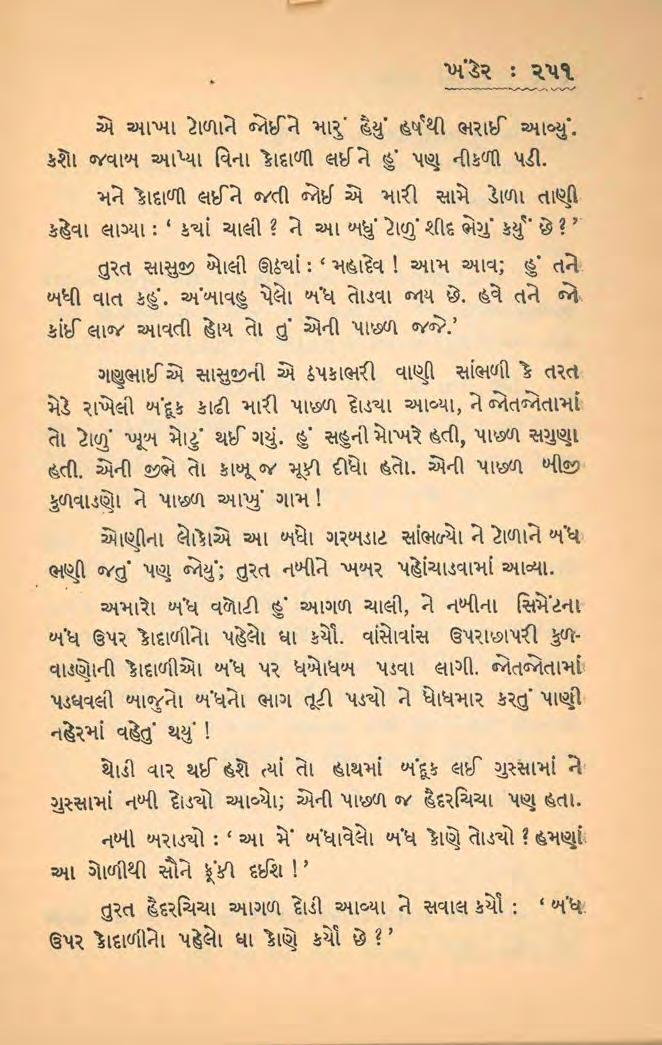 ખંડેર : ૨૫૧
એ આખા ટોળાને જોઈને મારું હૈયું હર્ષથી ભરાઈ આવ્યું.
કશો જવાબ આપ્યા વિના કોદાળી લઈને હું પણ નીકળી પડી.
મને કોદાળી લઈને જતી જોઈ એ મારી સામે ડોળા તાણી
કહેવા લાગ્યા : ‘ ક્યાં ચાલી ? ને આ બધું ટોળું શીદ ભેગું કર્યું છે ? ’
તુરત સાસુજી બોલી ઊઠ્યાં : ‘ મહાદેવ ! આમ આવ; હું તને
બધી વાત કહું. અંબાવહુ પેલો બંધ તોડવા જાય છે. હવે તને જો
કાંઈ લાજ આવતી હોય તો તું એની પાછળ જજે.’
ગણુભાઈએ સાસુજીની એ ઠપકાભરી વાણી સાંભળી કે તરત
મેડે રાખેલી બંદૂક કાઢી મારી પાછળ દોડ્યા આવ્યા, ને જોતજોતામાં
તો ટોળું ખૂબ મોટું થઈ ગયું. હું સહુની મોખરે હતી, પાછળ સગુણા
હતી. એની જીભે તો કાબૂ જ મૂકી દીધો હતો. એની પાછળ બીજી
કુળવાડણો ને પાછળ આખું ગામ !
ઓણીના લોકોએ આ બધો ગરબડાટ સાંભળ્યો ને ટોળાને બંધ
ભણી જતું પણ જોયું; તુરત નબીને ખબર પહોંચાડવામાં આવ્યા.
અમારો બંધ વળોટી હું આગળ ચાલી, ને નબીના સિમેંટના
બંધ ઉપર કોદાળીનો પહેલો ઘા કર્યો. વાંસોવાંસ ઉપરાછાપરી કુળ-
વાડણોની કોદાળીઓ બંધ પર ધબોધબ પડવા લાગી. જોતજોતામાં
પડધવલી બાજુનો બંધનો ભાગ તૂટી પડ્યો ને ધોધમાર કરતું પાણી
નહેરમાં વહેતું થયું !
થોડી વાર થઈ હશે ત્યાં તો હાથમાં બંદૂક લઈ ગુસ્સામાં ને
ગુસ્સામાં નબી દોડ્યો આવ્યો; એની પાછળ જ હૈદરચિચા પણ હતા.
નબી બરાડ્યો : ‘ આ મેં બંધાવેલો બંધ કોણે તોડ્યો ? હમણાં
આ ગોળીથી સૌને ફૂંકી દઈશ ! ’
તુરત હૈદરચિચા આગળ દોડી આવ્યા ને સવાલ કર્યો : ‘ બંધ
ઉપર કોદાળીનો પહેલો ઘા કોણે કર્યો છે ? ’